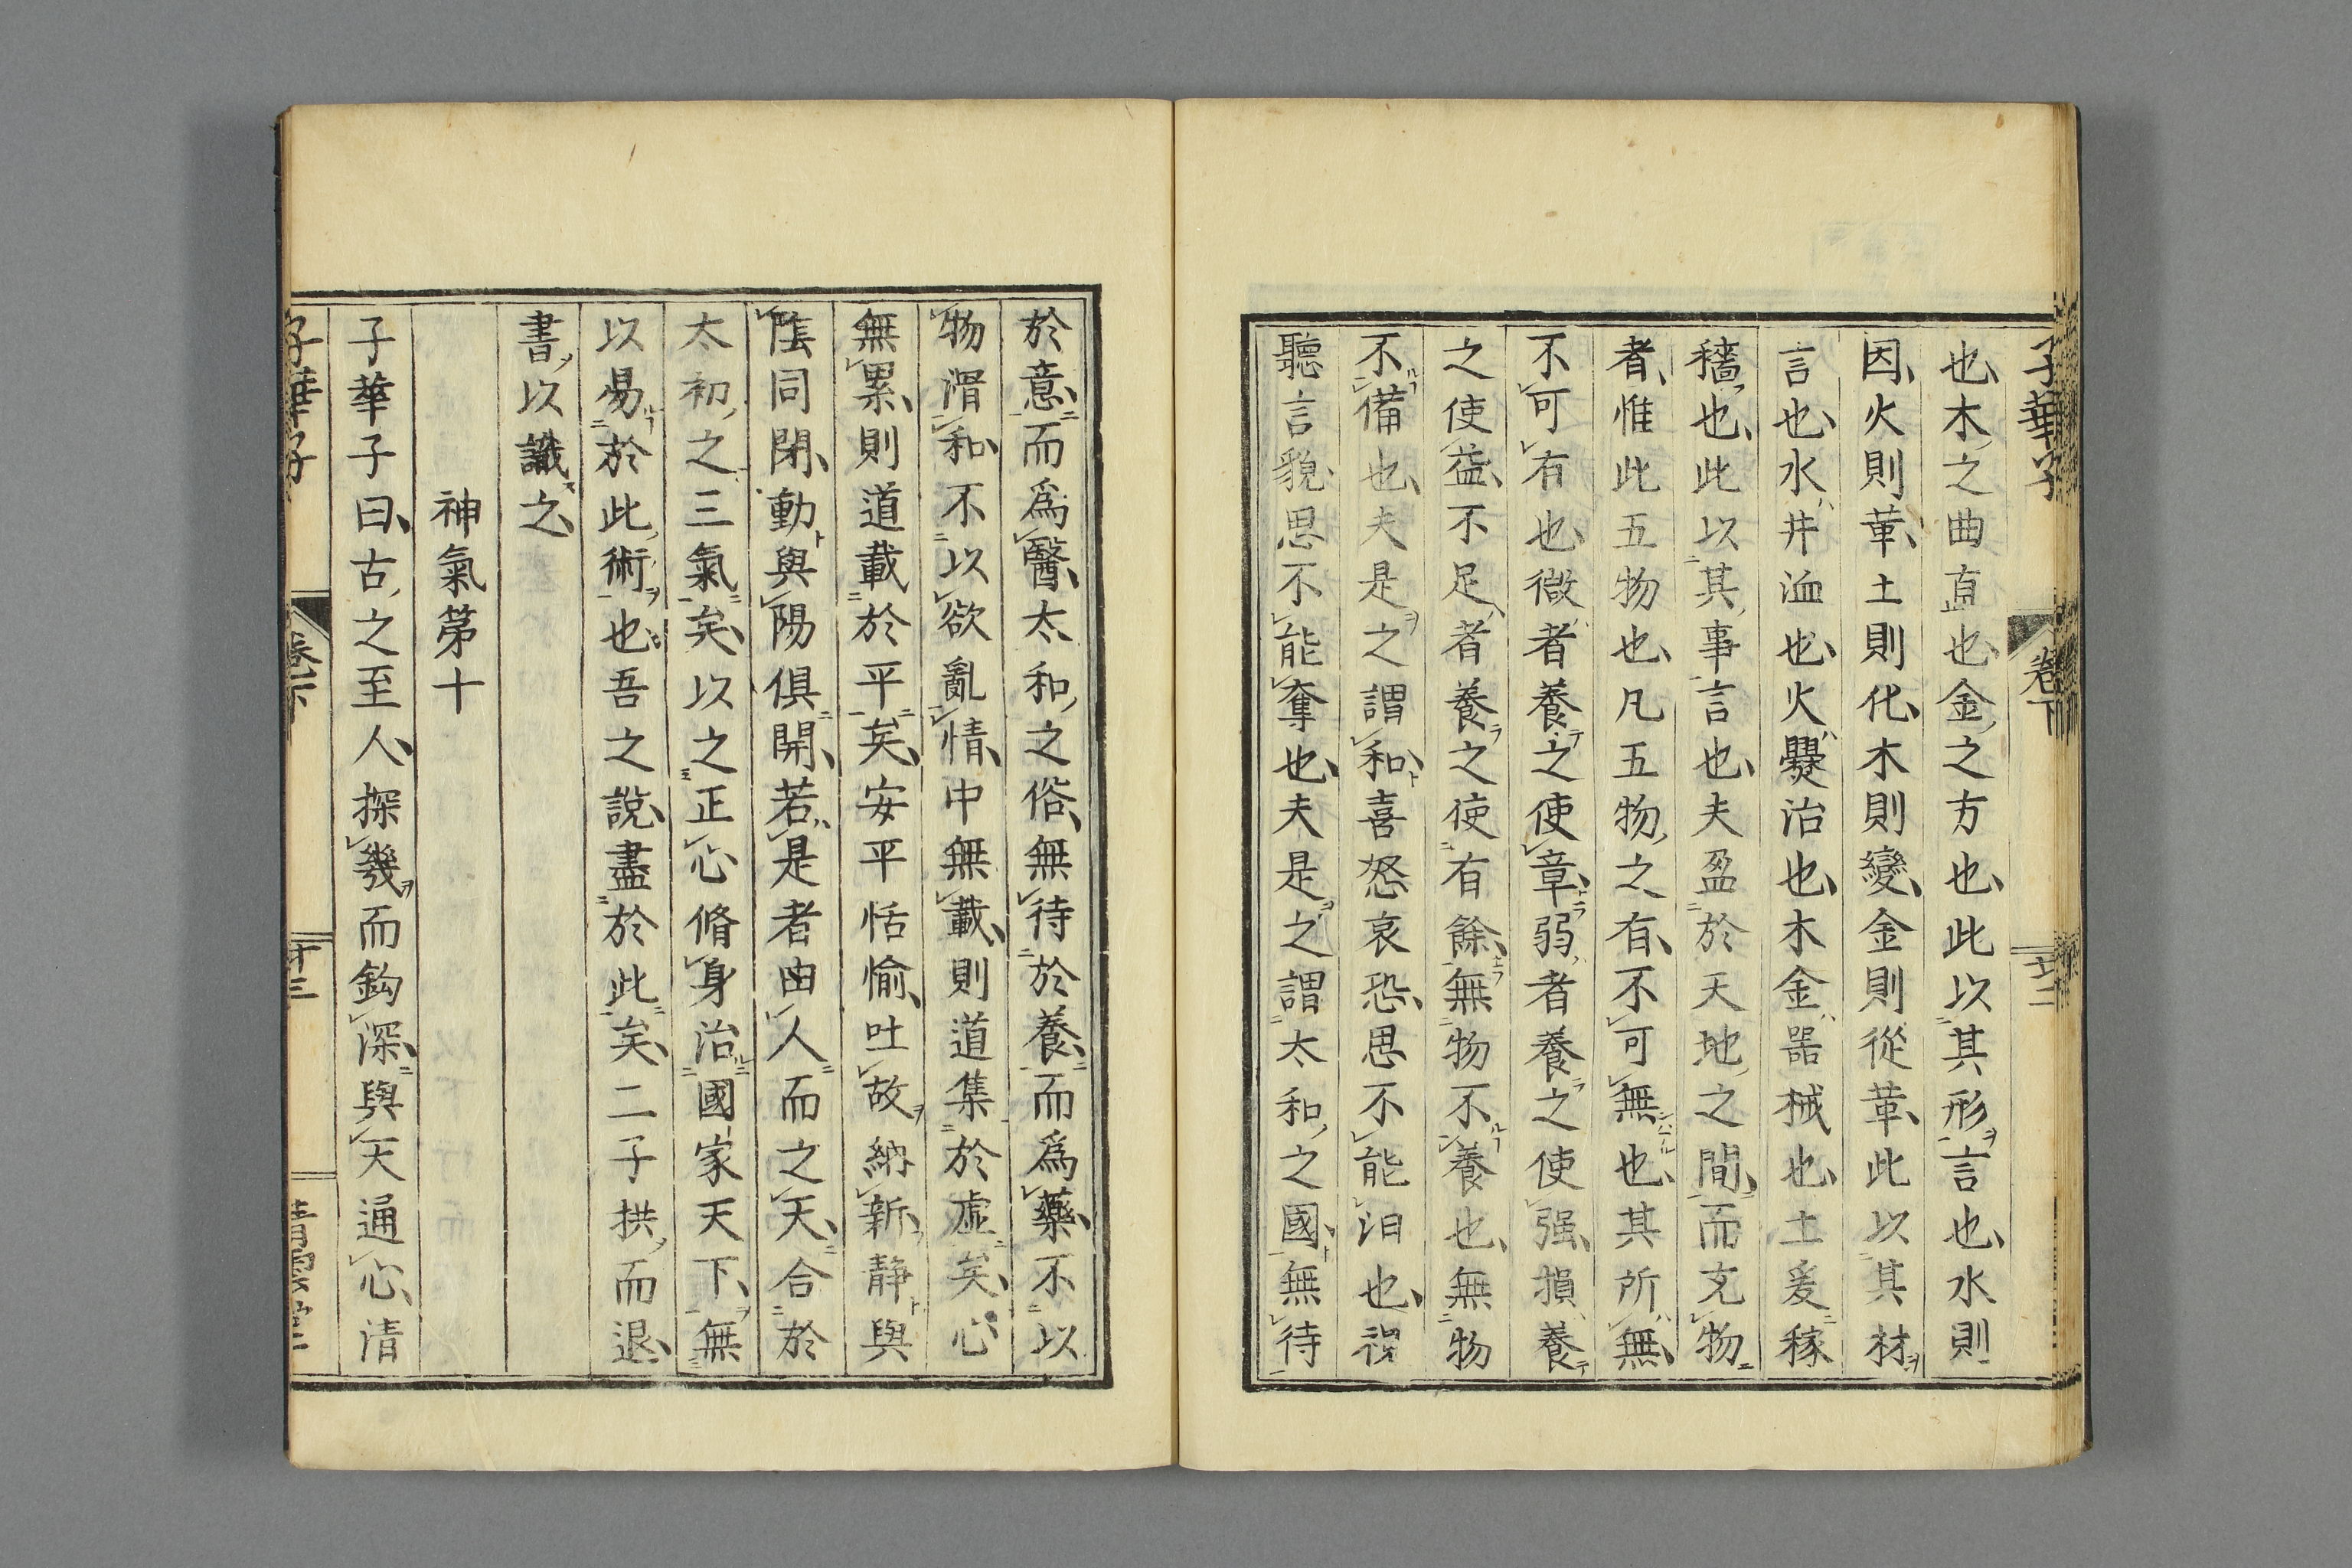 子華子 卷下 十二
也木之曲直也金之方也此以其形言也水則
因火則革土則化木則變金則從革此以其材
言也水井洫也火爨冶也木金器械也土爰稼
穡也此以其事言也夫盈於天地之間而充物
者惟此五物也凡五物之有不可無也其所無
不可有也微者養之使章弱者養之使强損養
之使益不足者養之使有餘無物不養也無物
不備也夫是之謂和喜怒哀恐思不能汨也視
聽言貌思不能奪也夫是之謂太和之國無待
於意而爲醫太和之俗無待於養而爲藥不以
物滑和不以欲亂情中無載則道集於虛矣心
無累則道載於平矣安平恬愉吐故納新静與
陰同閉動與陽俱開若是者由人而之天合於
太初之三氣矣以之正心脩身治國家天下無
以易於此術也吾之說盡於此矣二子拱而退
書以識之
神氣第十
子華子曰古之至人探幾而鈎深與天通心清
子華子 卷下 十三